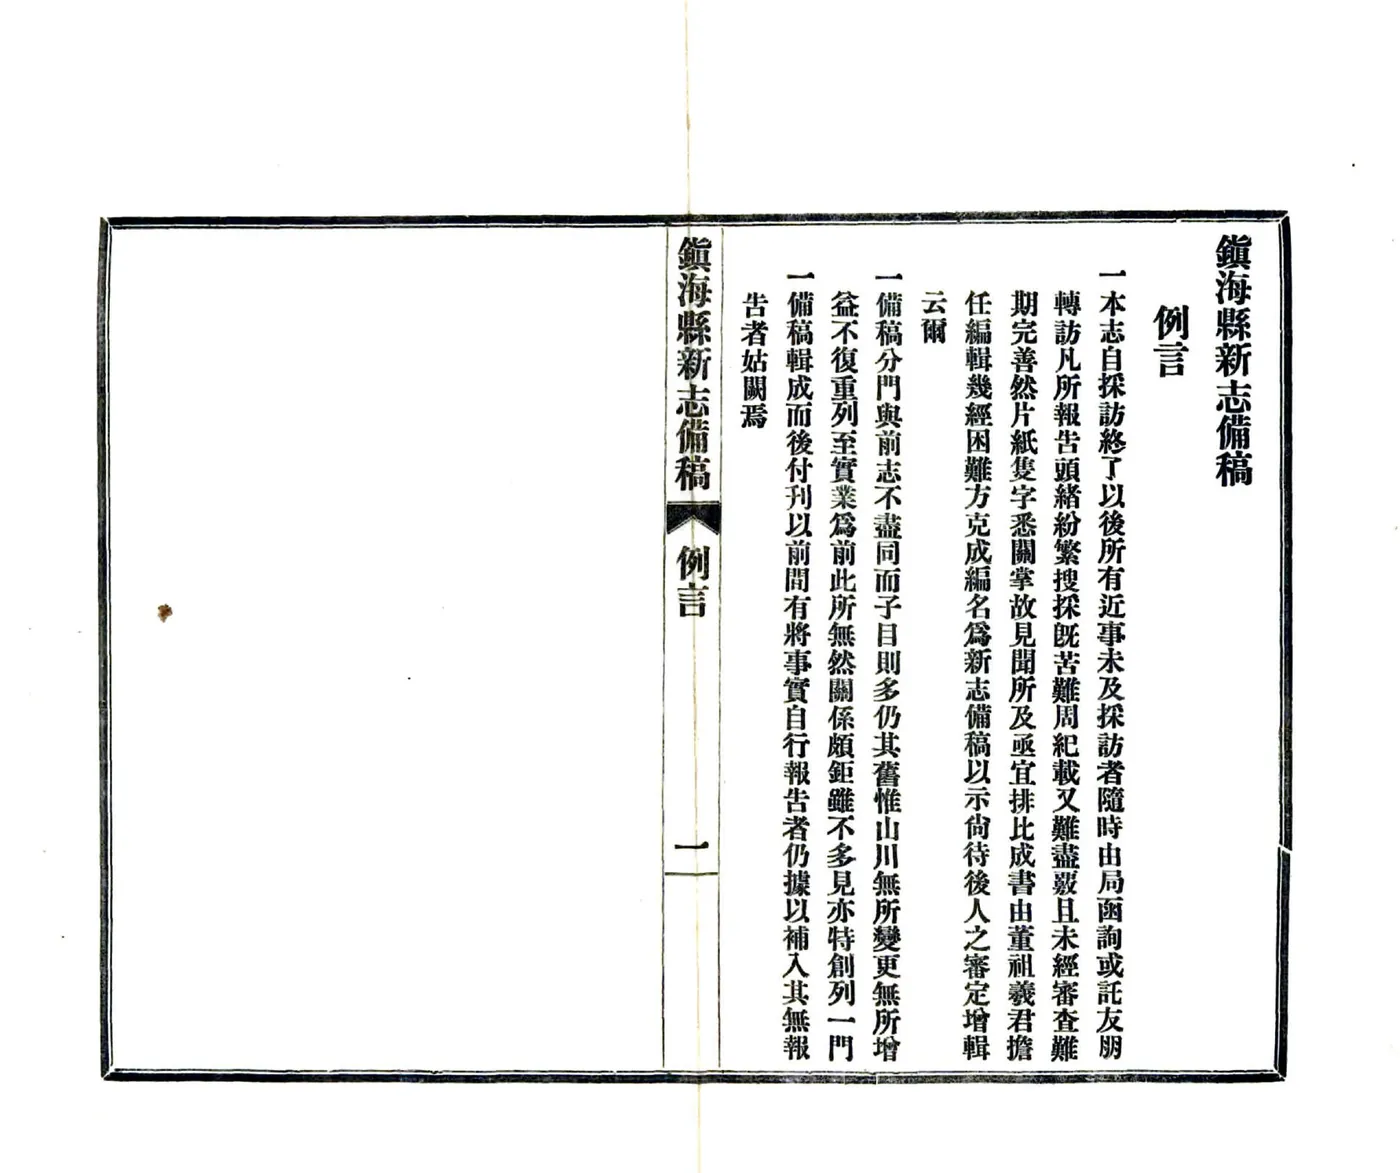 鎭海縣新志備稿
例言
一本志自採訪終了以後所有近事未及採訪者隨時由局函詢或託友朋
轉訪凡所報告頭緒紛繁搜採旣苦難周紀載又難盡覈且未經審查難
期完善然片紙隻字悉關掌故見聞所及亟宜排比成書由董祖羲君擔
任編輯幾經困難方克成編名爲新志備稿以示尙待後人之審定增輯
云爾
一備稿分門與前志不盡同而子目則多仍其舊惟山川無所變更無所增
益不復重列至實業爲前此所無然關係頗鉅雖不多見亦特創列一門
一備稿輯成而後付刊以前間有將事實自行報告者仍據以補入其無報
告者姑闕焉
鎭海縣新志備稿
例言
一